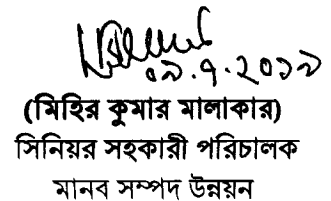 ০৯.৭.২০১৯
(মিহির কুমার মালাকার)
সিনিয়র সহকারী পরিচালক
মানব সম্পদ উন্নয়ন